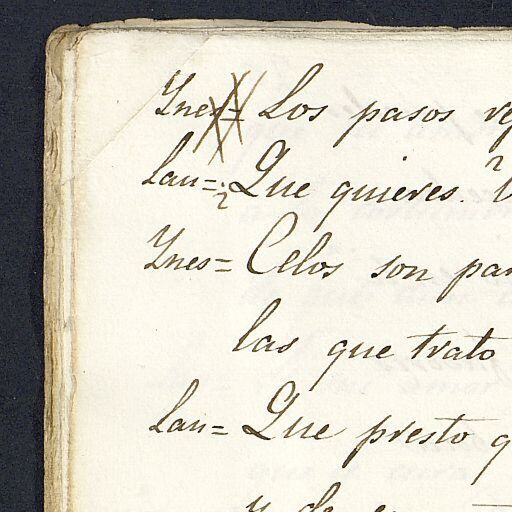 Ynes= Los pasos
Lau= ¿Que quieres?
Ynes= Celos son
las que trato
Lau= Que presto q
y de